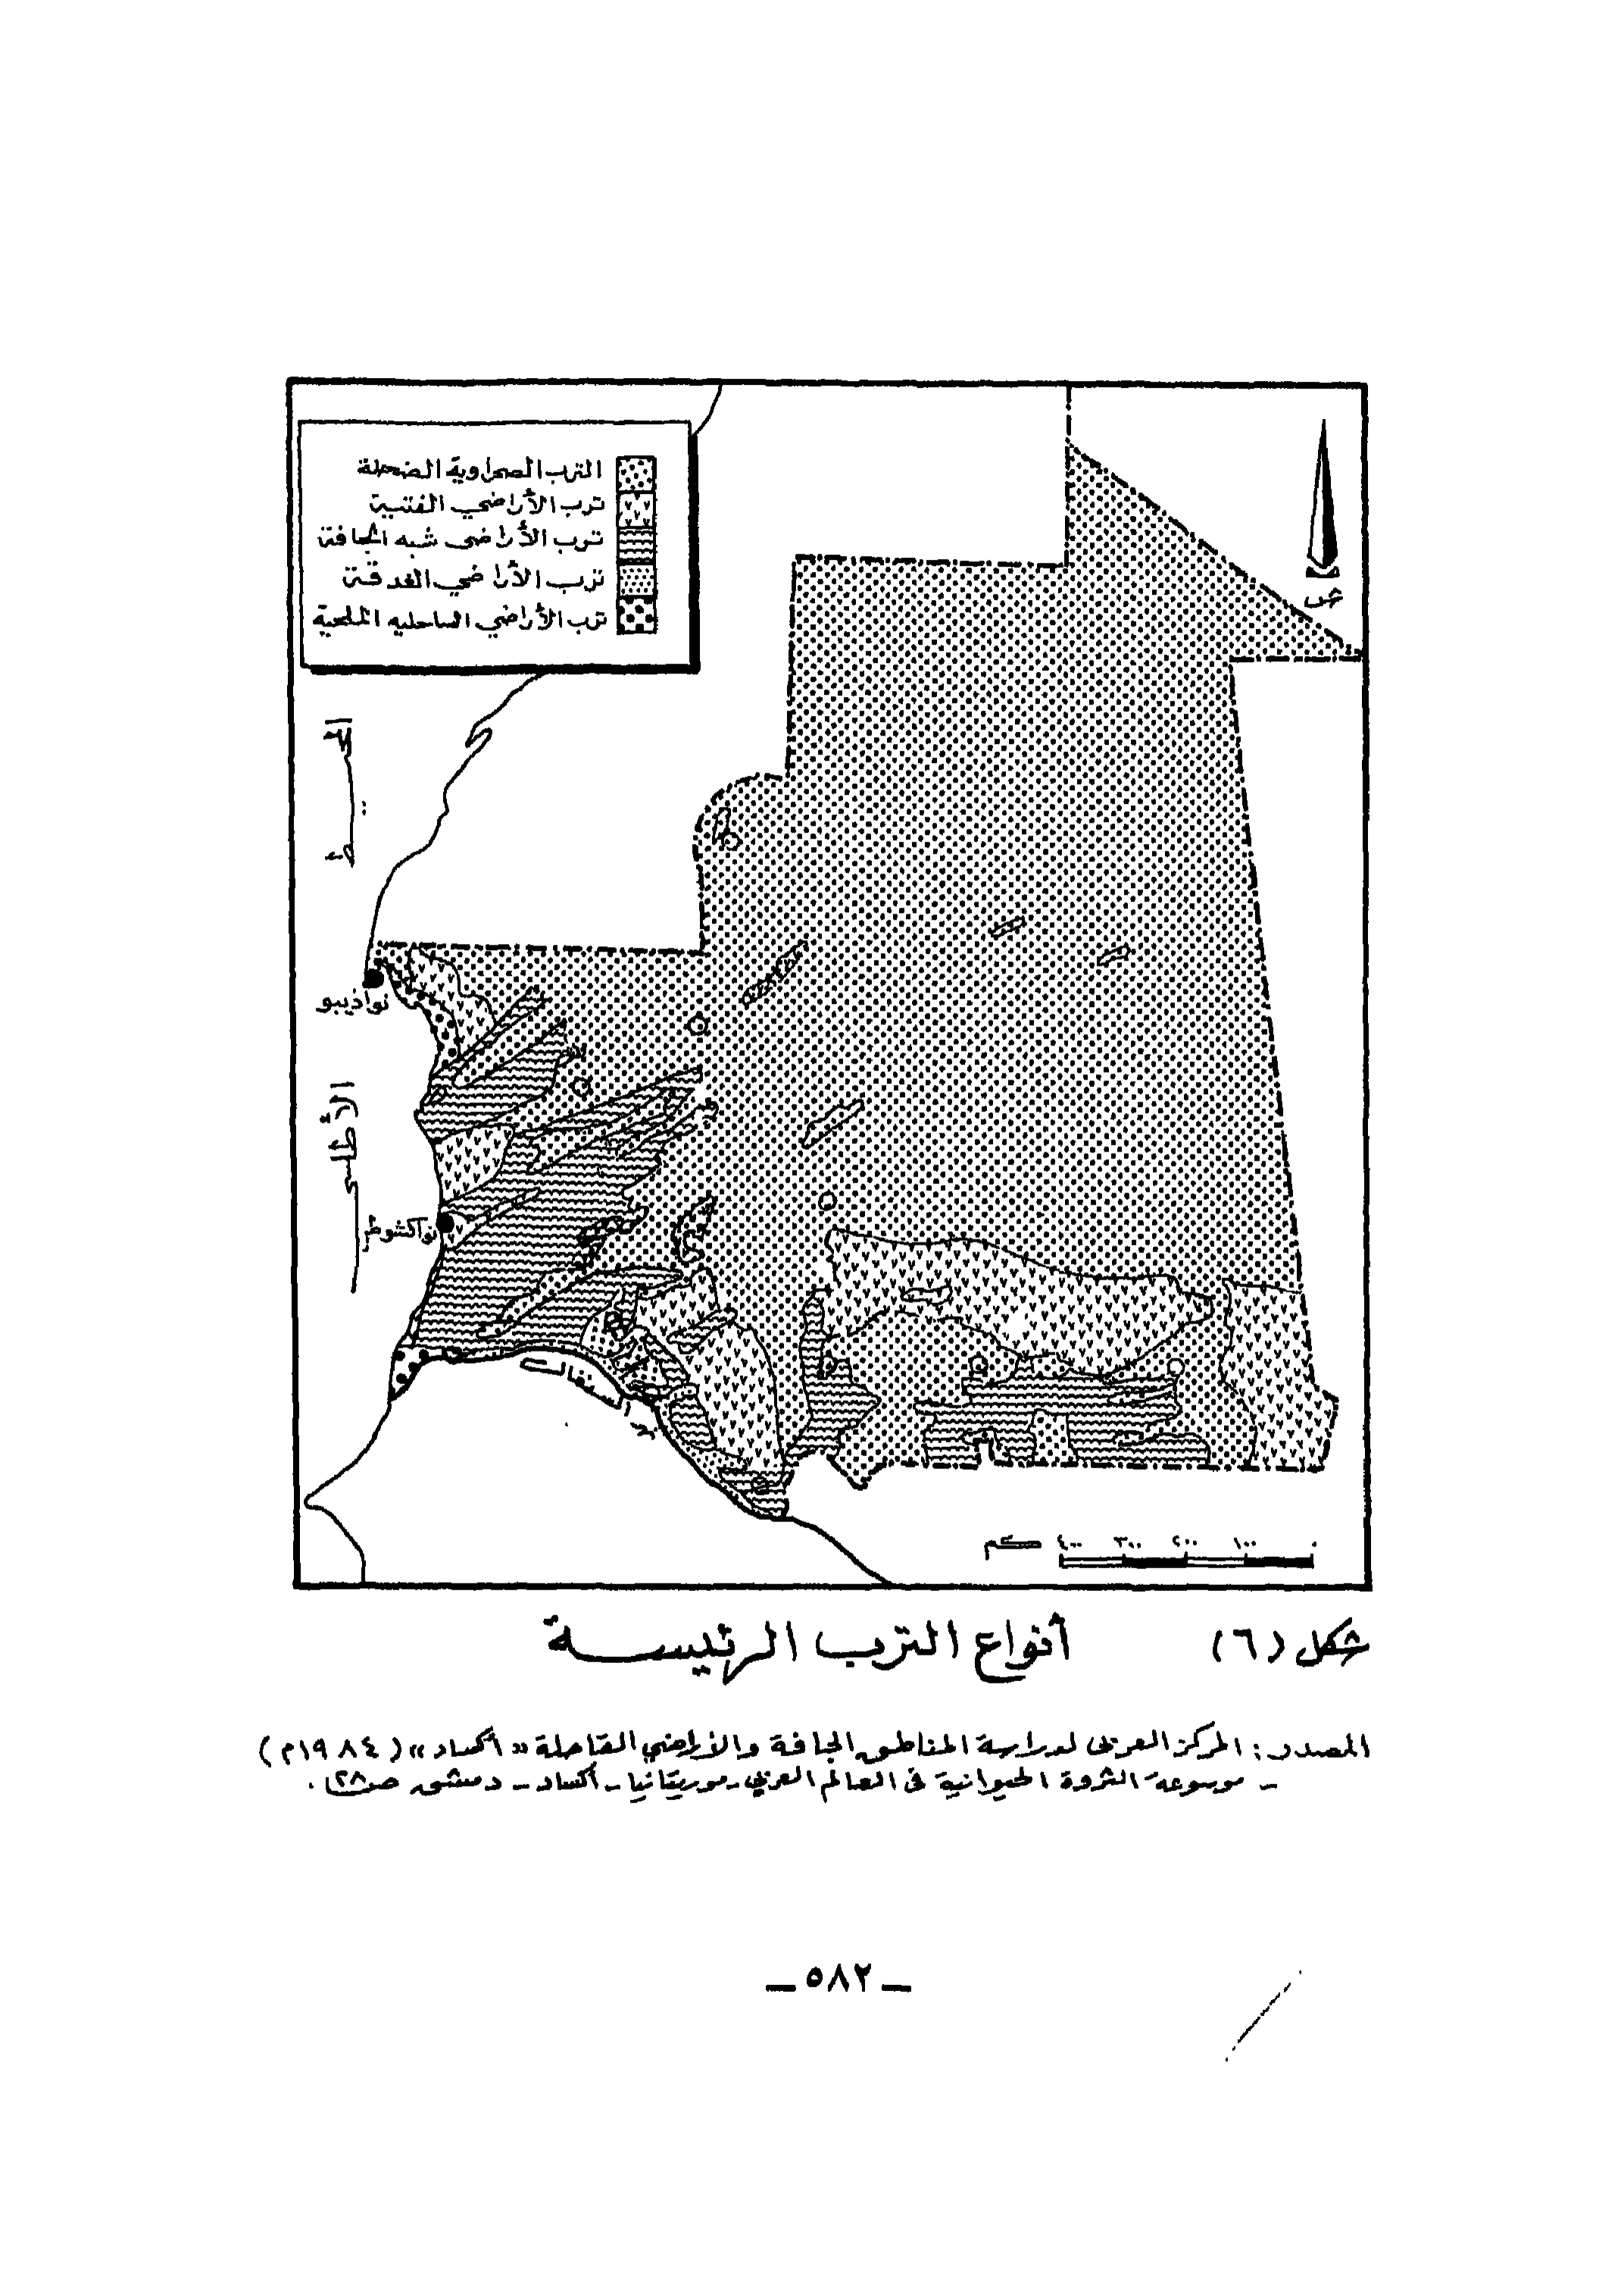 الترب الصحراوية الضحلة
ترب الأراضي الفتية
ترب الأراضي شبه الجافة
ترب الأراضي الغدقة
ترب الأراضي الساحليه الملحية
المحيط
الأطلسي
نواذيبو
نواكشوط
نهر السنغال
شمال
٠ ١٠٠ ٢٠٠ ٣٠٠ ٤٠٠ كم
شكل (٦) أنواع الترب الرئيسة
المصدر: المركز العربي لدراسة المناطق الجافة والأراضي القاحلة «أكساد» (١٩٨٤م)
- موسوعة الثروة الحيوانية في العالم العربي - موريتانيا - أكساد - دمشق ص٢٨.
— ٥٨٢ —